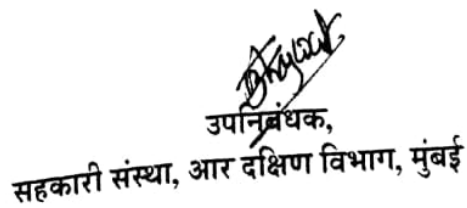 उपनिबंधक,
सहकारी संस्था, आर दक्षिण विभाग, मुंबई